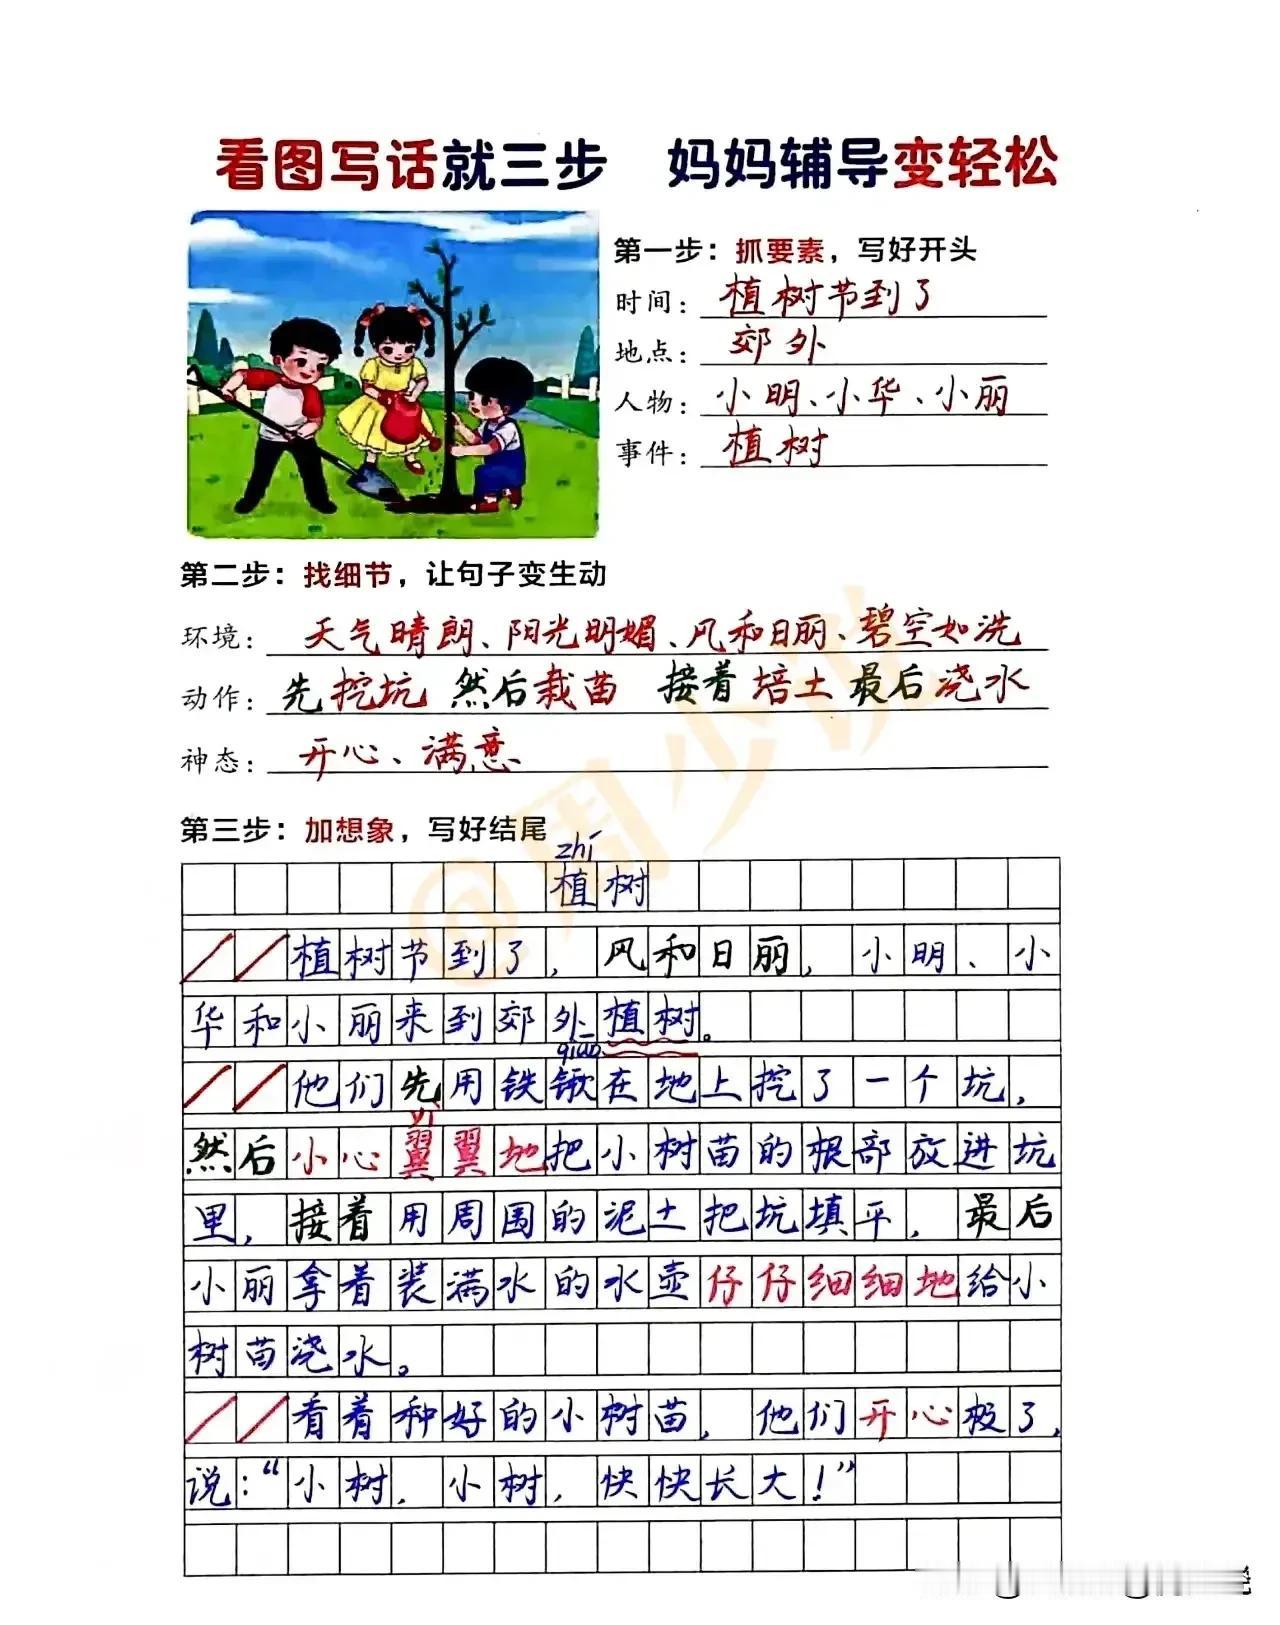 看图写话就三步 妈妈辅导变轻松
第一步：抓要素，写好开头
时间：植树节到了
地点：郊外
人物：小明、小华、小丽
事件：植树
第二步：找细节，让句子变生动
环境：天气晴朗、阳光明媚、风和日丽、碧空如洗
动作：先挖坑 然后栽苗 接着培土 最后浇水
神态：开心、满意
第三步：加想象，写好结尾
zhí
植树
植树节到了，风和日丽，小明、小
华和小丽来到郊外植树。
qiāo
他们先用铁锹在地上挖了一个坑，
yì
然后小心翼翼地把小树苗的根部放进坑
里，接着用周围的泥土把坑填平，最后
小丽拿着装满水的水壶仔仔细细地给小
树苗浇水。
看着种好的小树苗，他们开心极了，
说：“小树，小树，快快长大！”
@周少说